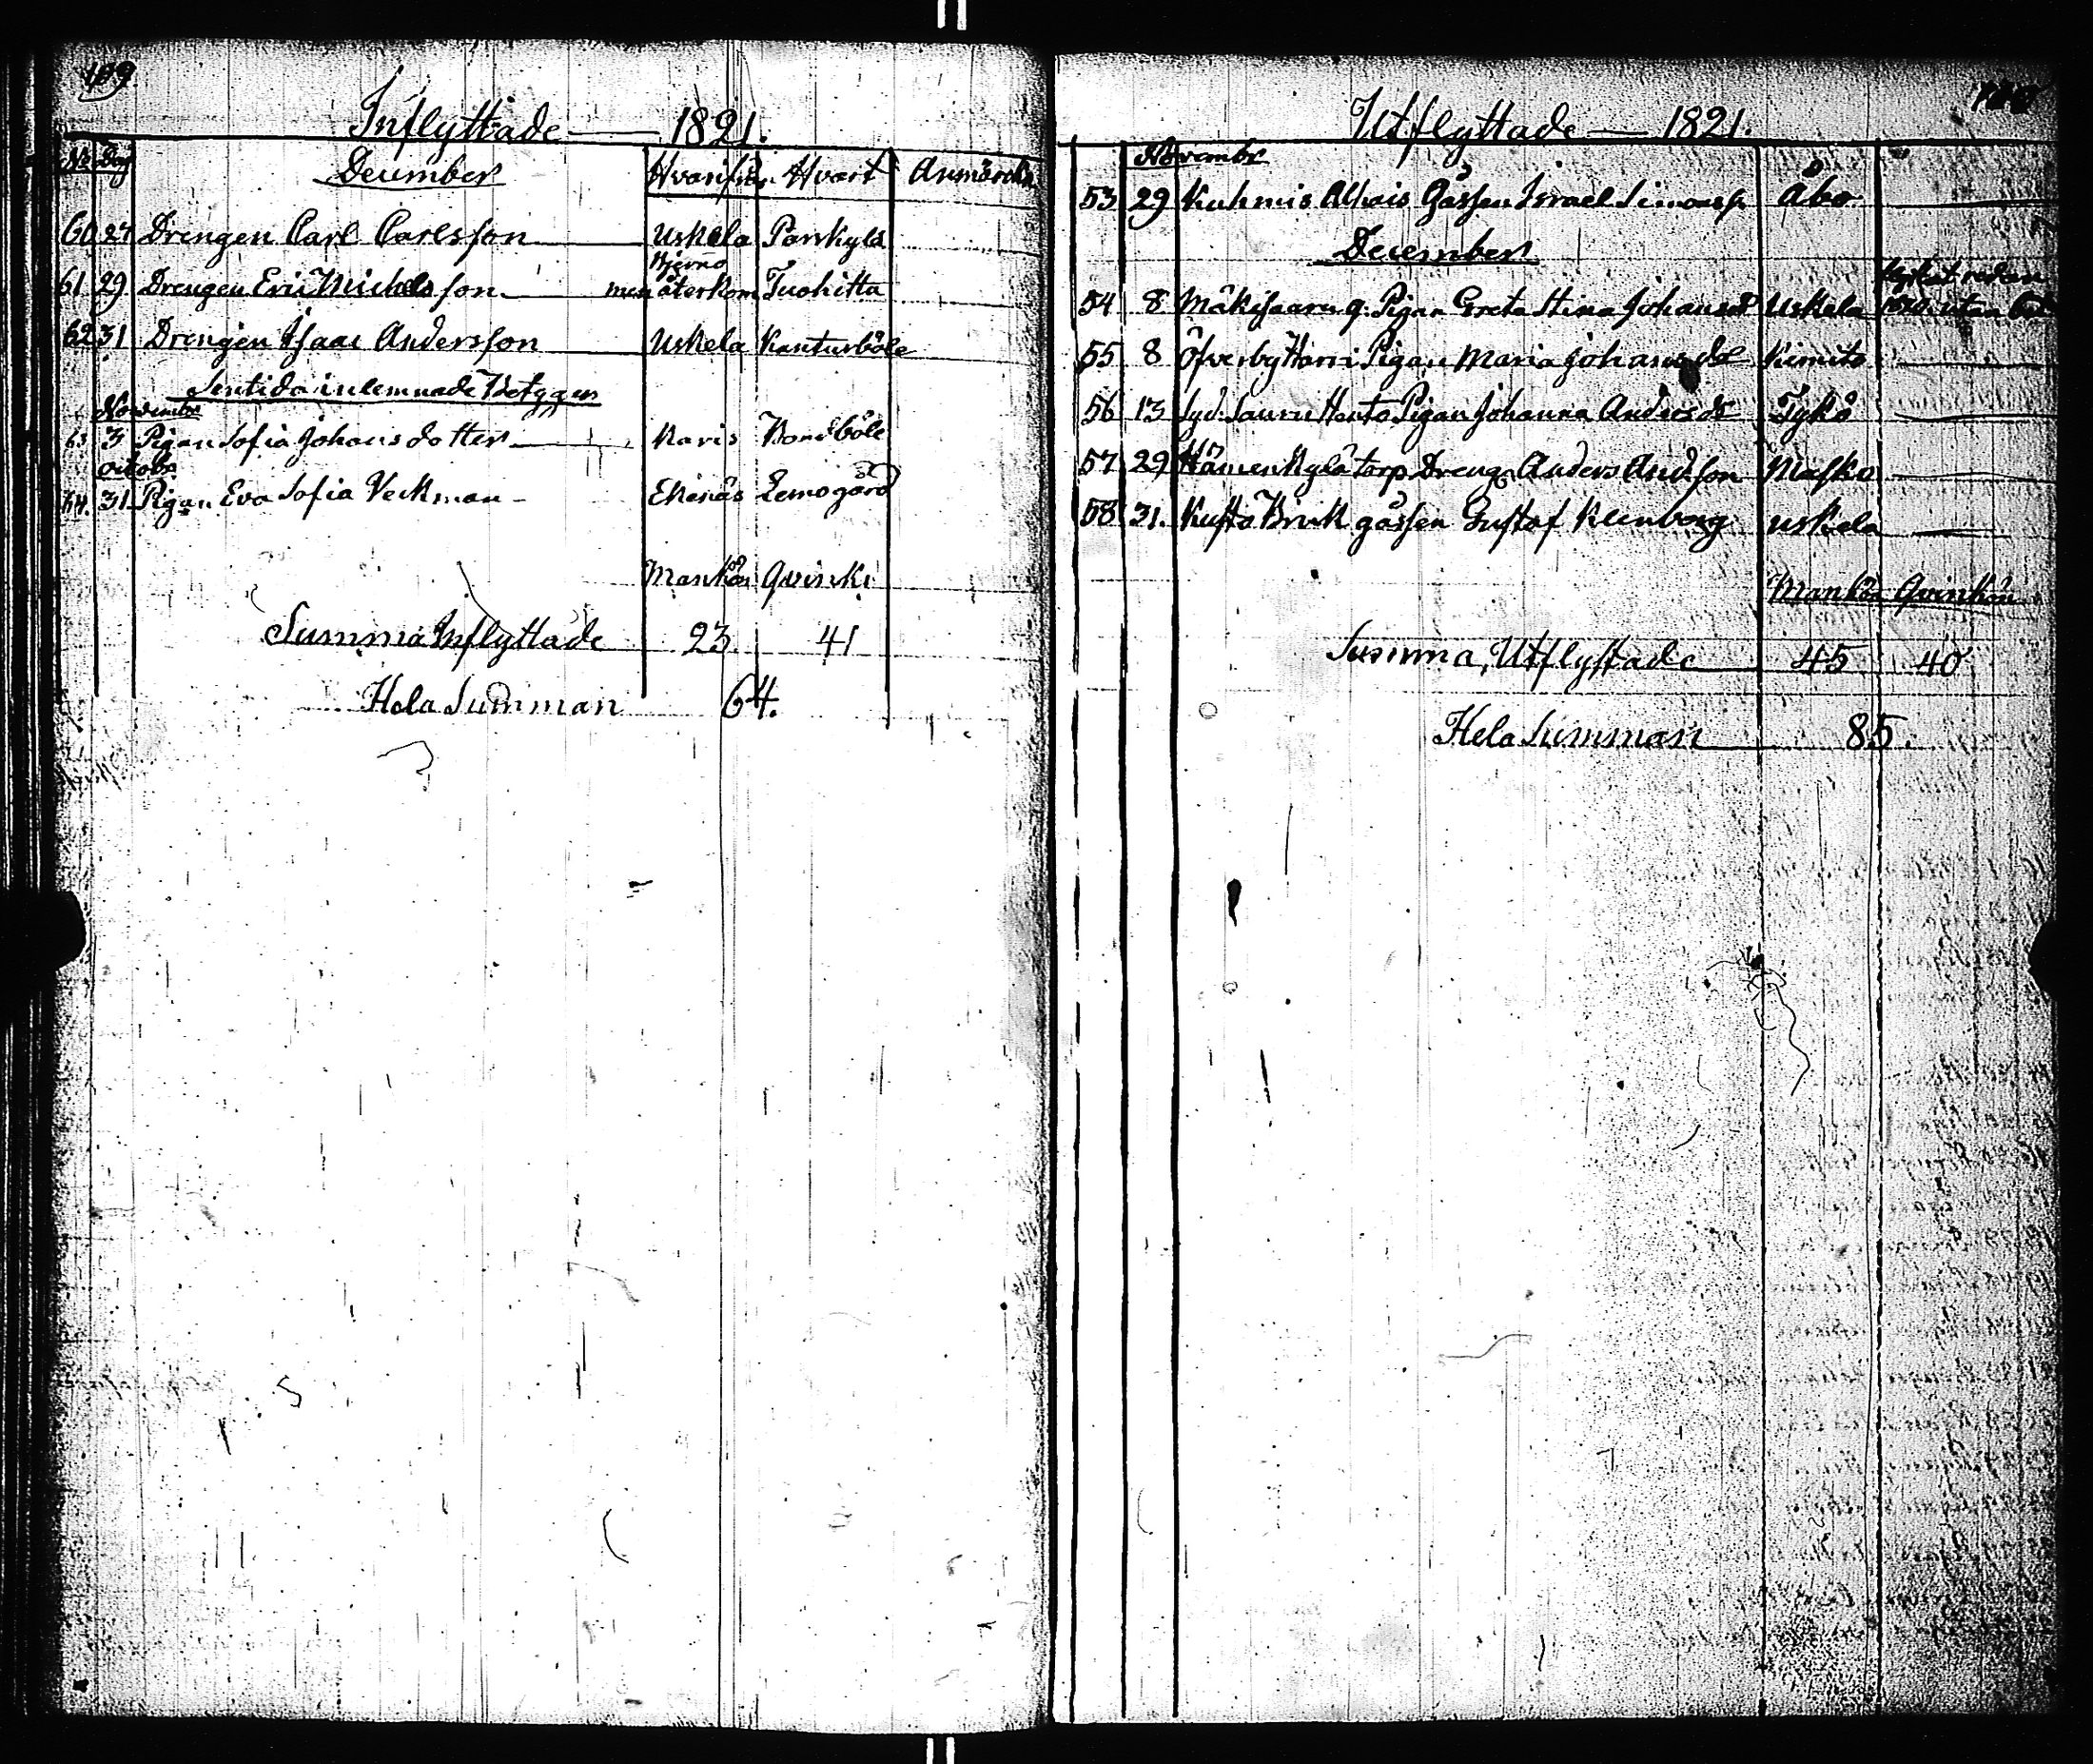 109.
Inflyttade — 1821.
No Dag December Hvarifrån Hvart Anmärckn
60 27 Drengen Carl Carlsson Uskela Pankylä
Bjerno
61 29 Drengen Eric Michelsson men återkom Tuohitta
62 31 Drengen Isaac Andersson Uskela Kanturböle
Sentida inlemnade Betygen
November
63 3 Pigan Sofia Johansdotter Karis Bondböle
Octobr
64. 31. Pigan Eva Sofia Veckman Ekenäs Lemogård
Mankön Qvinkö
Summa Inflyttade 23 41
Hela Summan 64.
Utflyttade — 1821.
Novembr
53 29 Kuhmis Gåssen Israel Simonss Åbo
December
redan
54 8 Mäkisaaru g. Pigan Greta Stina Johansd Uskela utan bet
55 8 Öfverby Harri Pigan Maria Johansd Kimito
56 13 Lyd. Sauru Pigan Johanna Andersdr Tykö
57 29 Hämenkylä torp Dreng. Anders Andsson Masko
58 31. Kusto Bruk gåssen Gustaf Klenborg Uskela
Mankön Qvinkön
Summa, Utflyttade 45 40
Hela Summan 85.